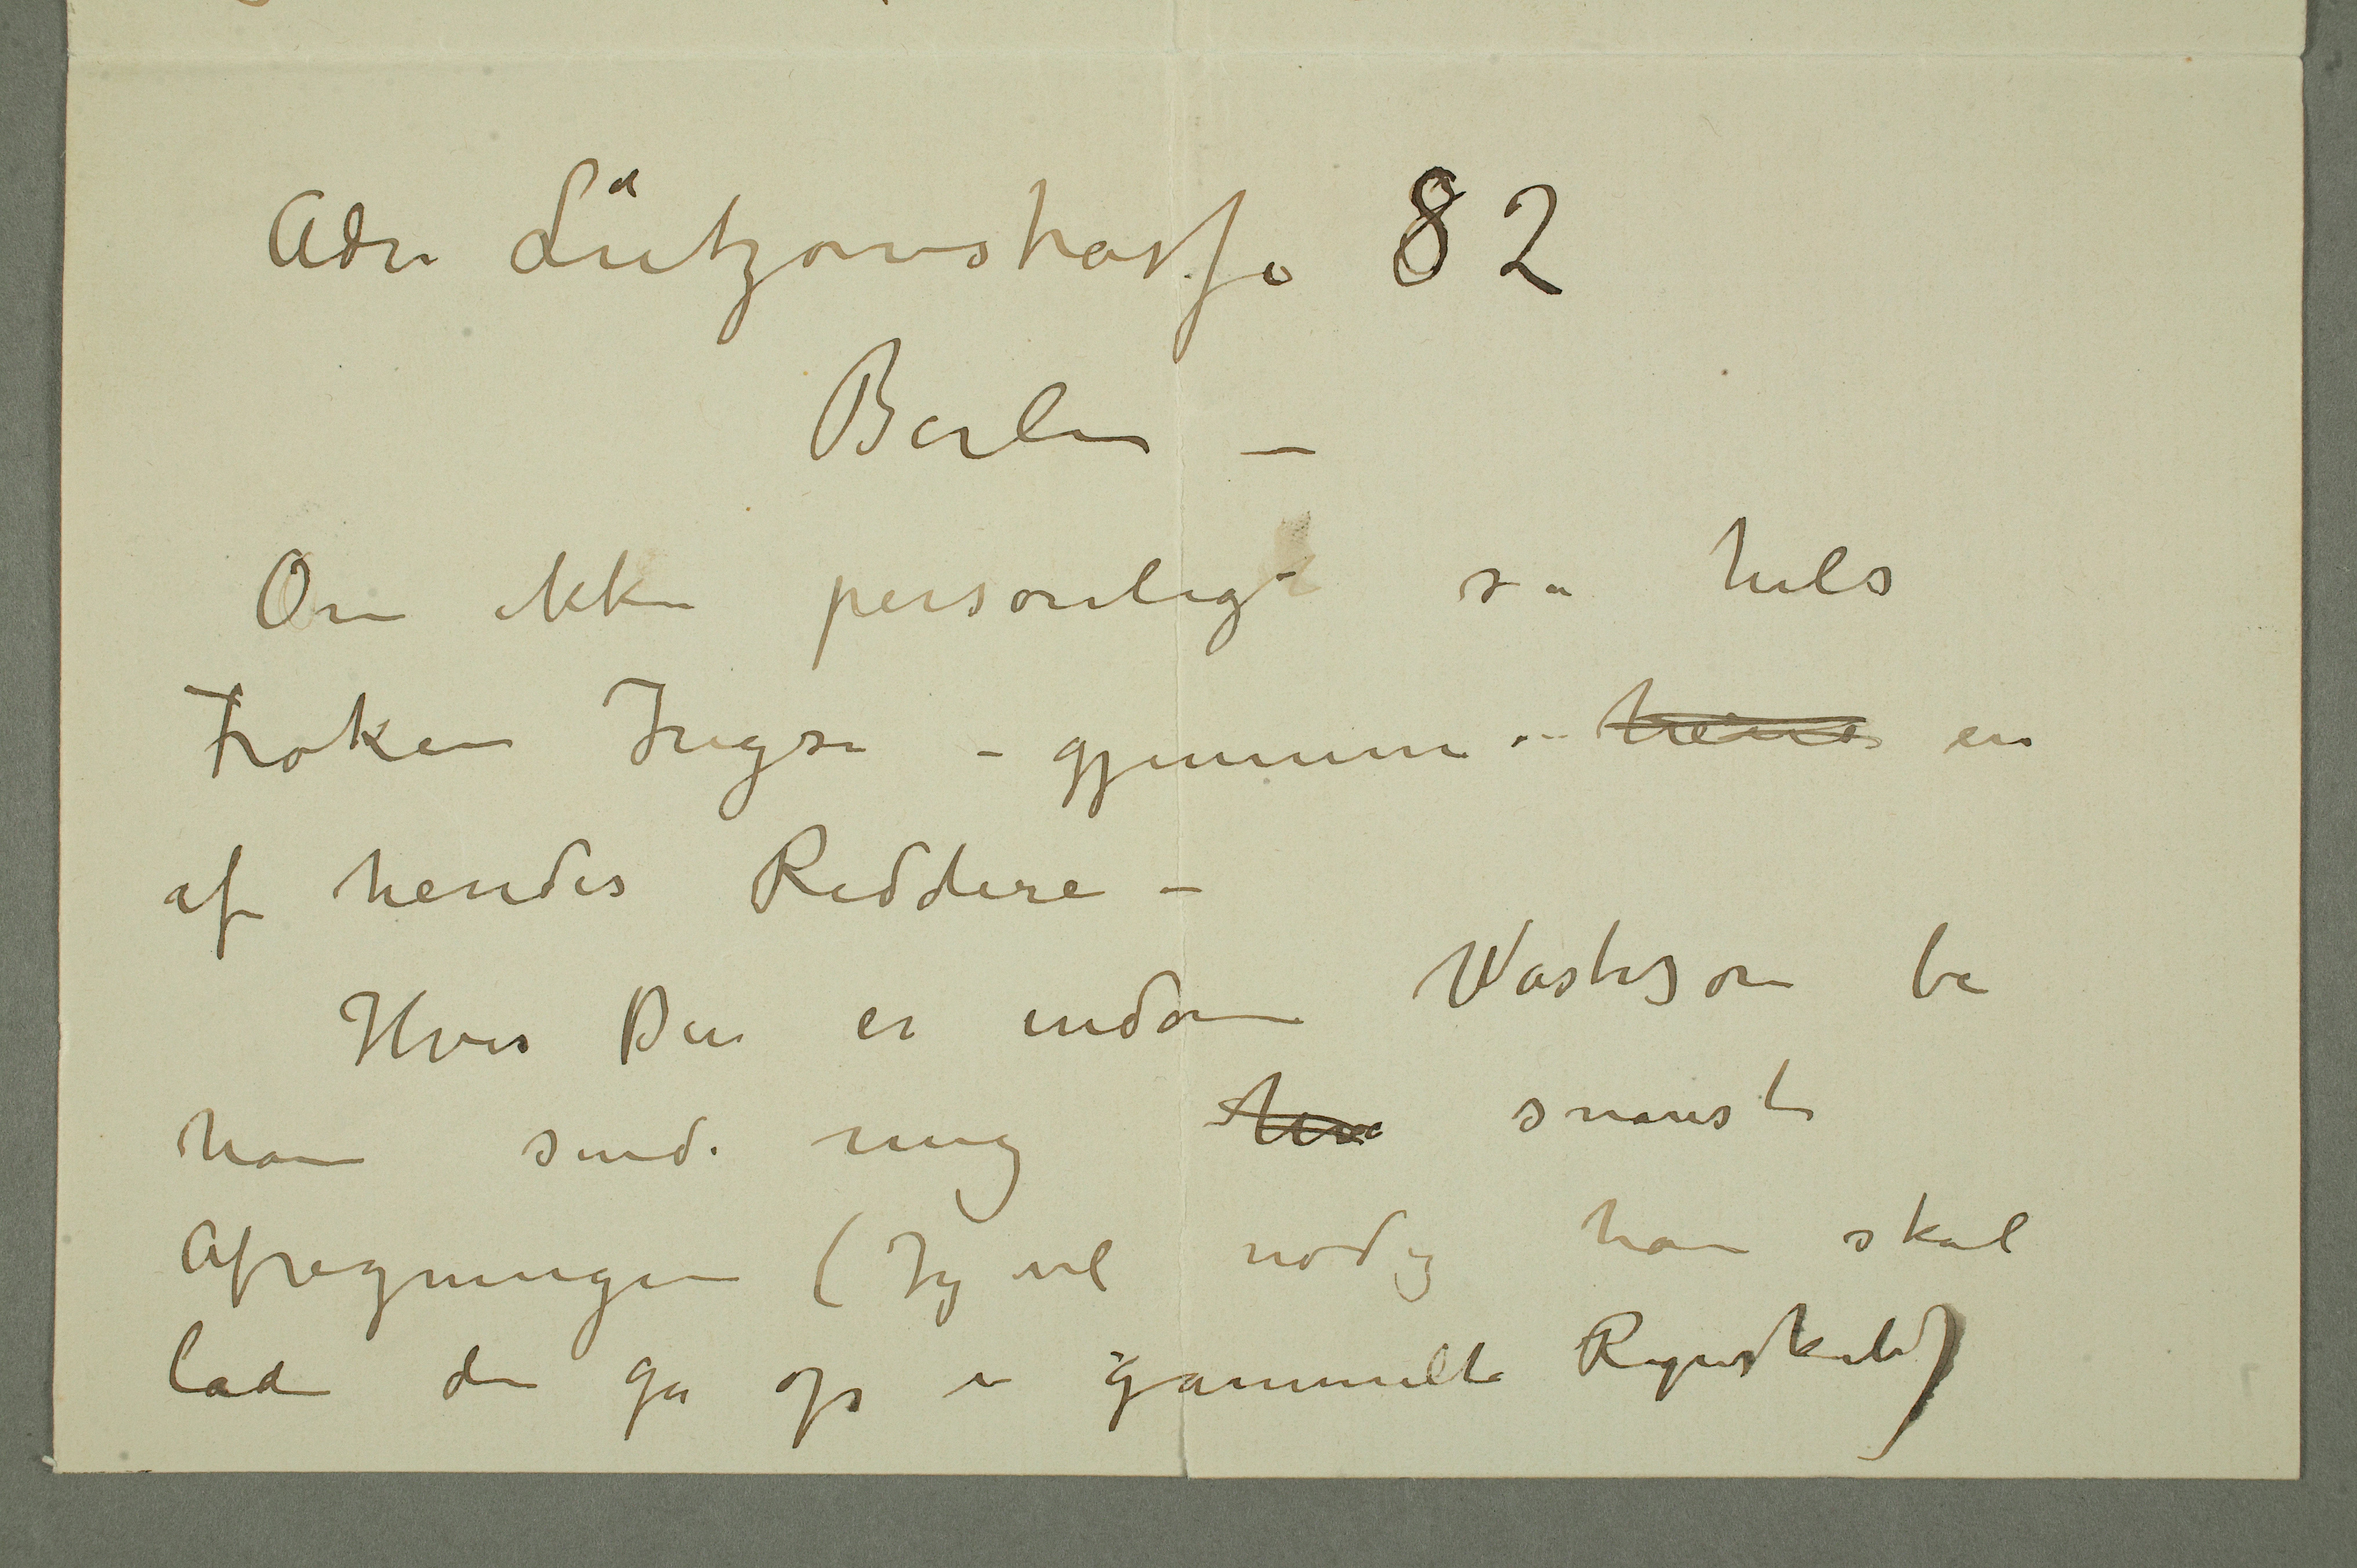 Adr. Lützowstrasse 82
Berlin –
Om ikke personligt så hils
Frøken – gjennem hende en
af hendes Riddere –
Hvis Du er indom be
ham sende mig snarest
Afregningen (Jeg vil nødig han skal
lade den gå op i gammelt Regnskab)